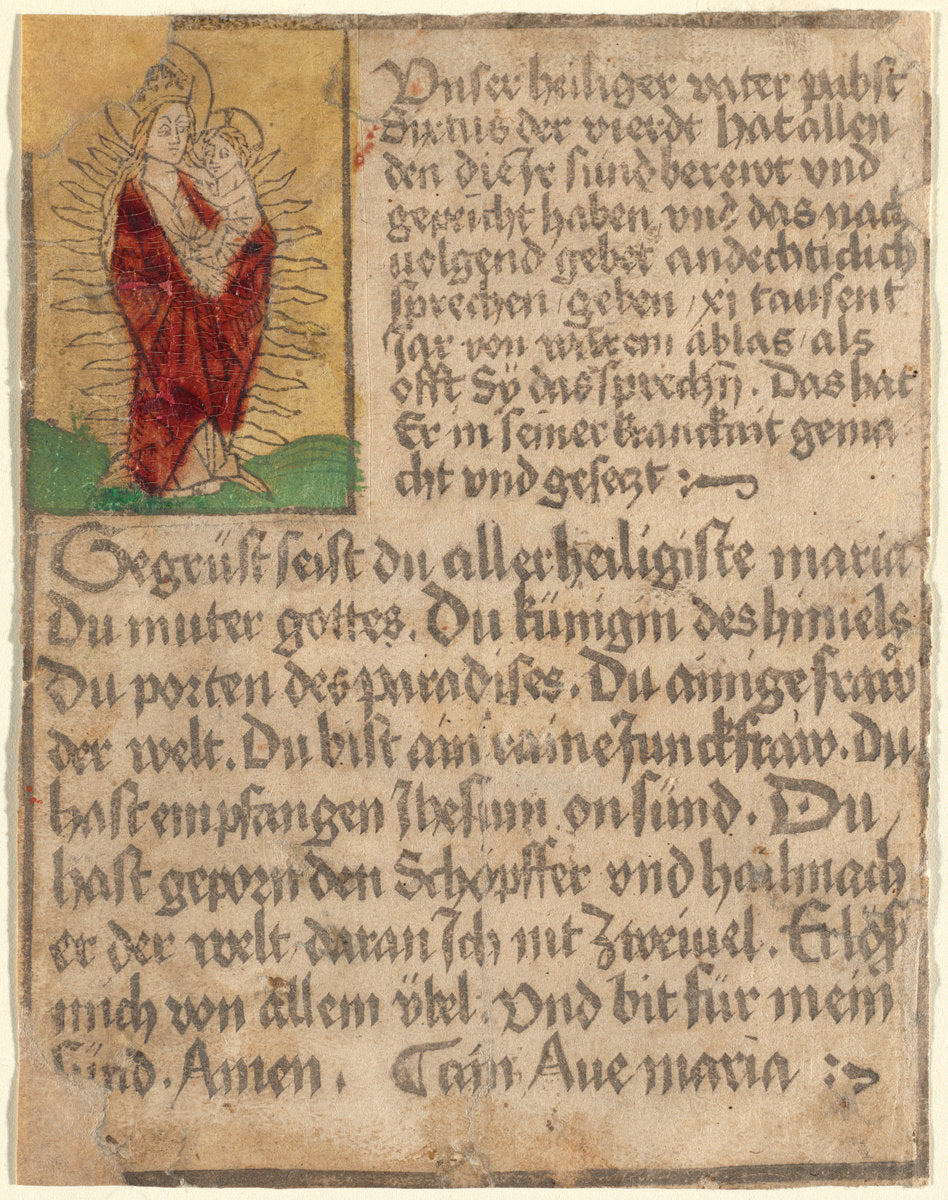 Vnser heiliger vater pabst
Sixtus der vierdt hat allen
den die Ir sünd berewt vnd
gepeicht haben, vnd das nach
uolgend gebet andechticlich
sprechen / geben / xj tausent
Jar von warem ablas / als
offt Sy das sprechn. Das hat
Er in seiner kranckait gema
cht vnd geseczt :~
Gegrüst seist du allerheiligiste maria
Du muter gottes. Du künigin des himels
Du porten des paradises. Du ainige fraw
der welt. Du bist ain raine Junckfraw. Du
hast empfangen Jhesum on sünd. Du
hast geporn den Schöpffer vnd hailmach
er der welt daran Ich nit Zweiuel. Erlös
mich von allem übel. Vnd bit für mein
Sünd. Amen. Cain Aue maria :~